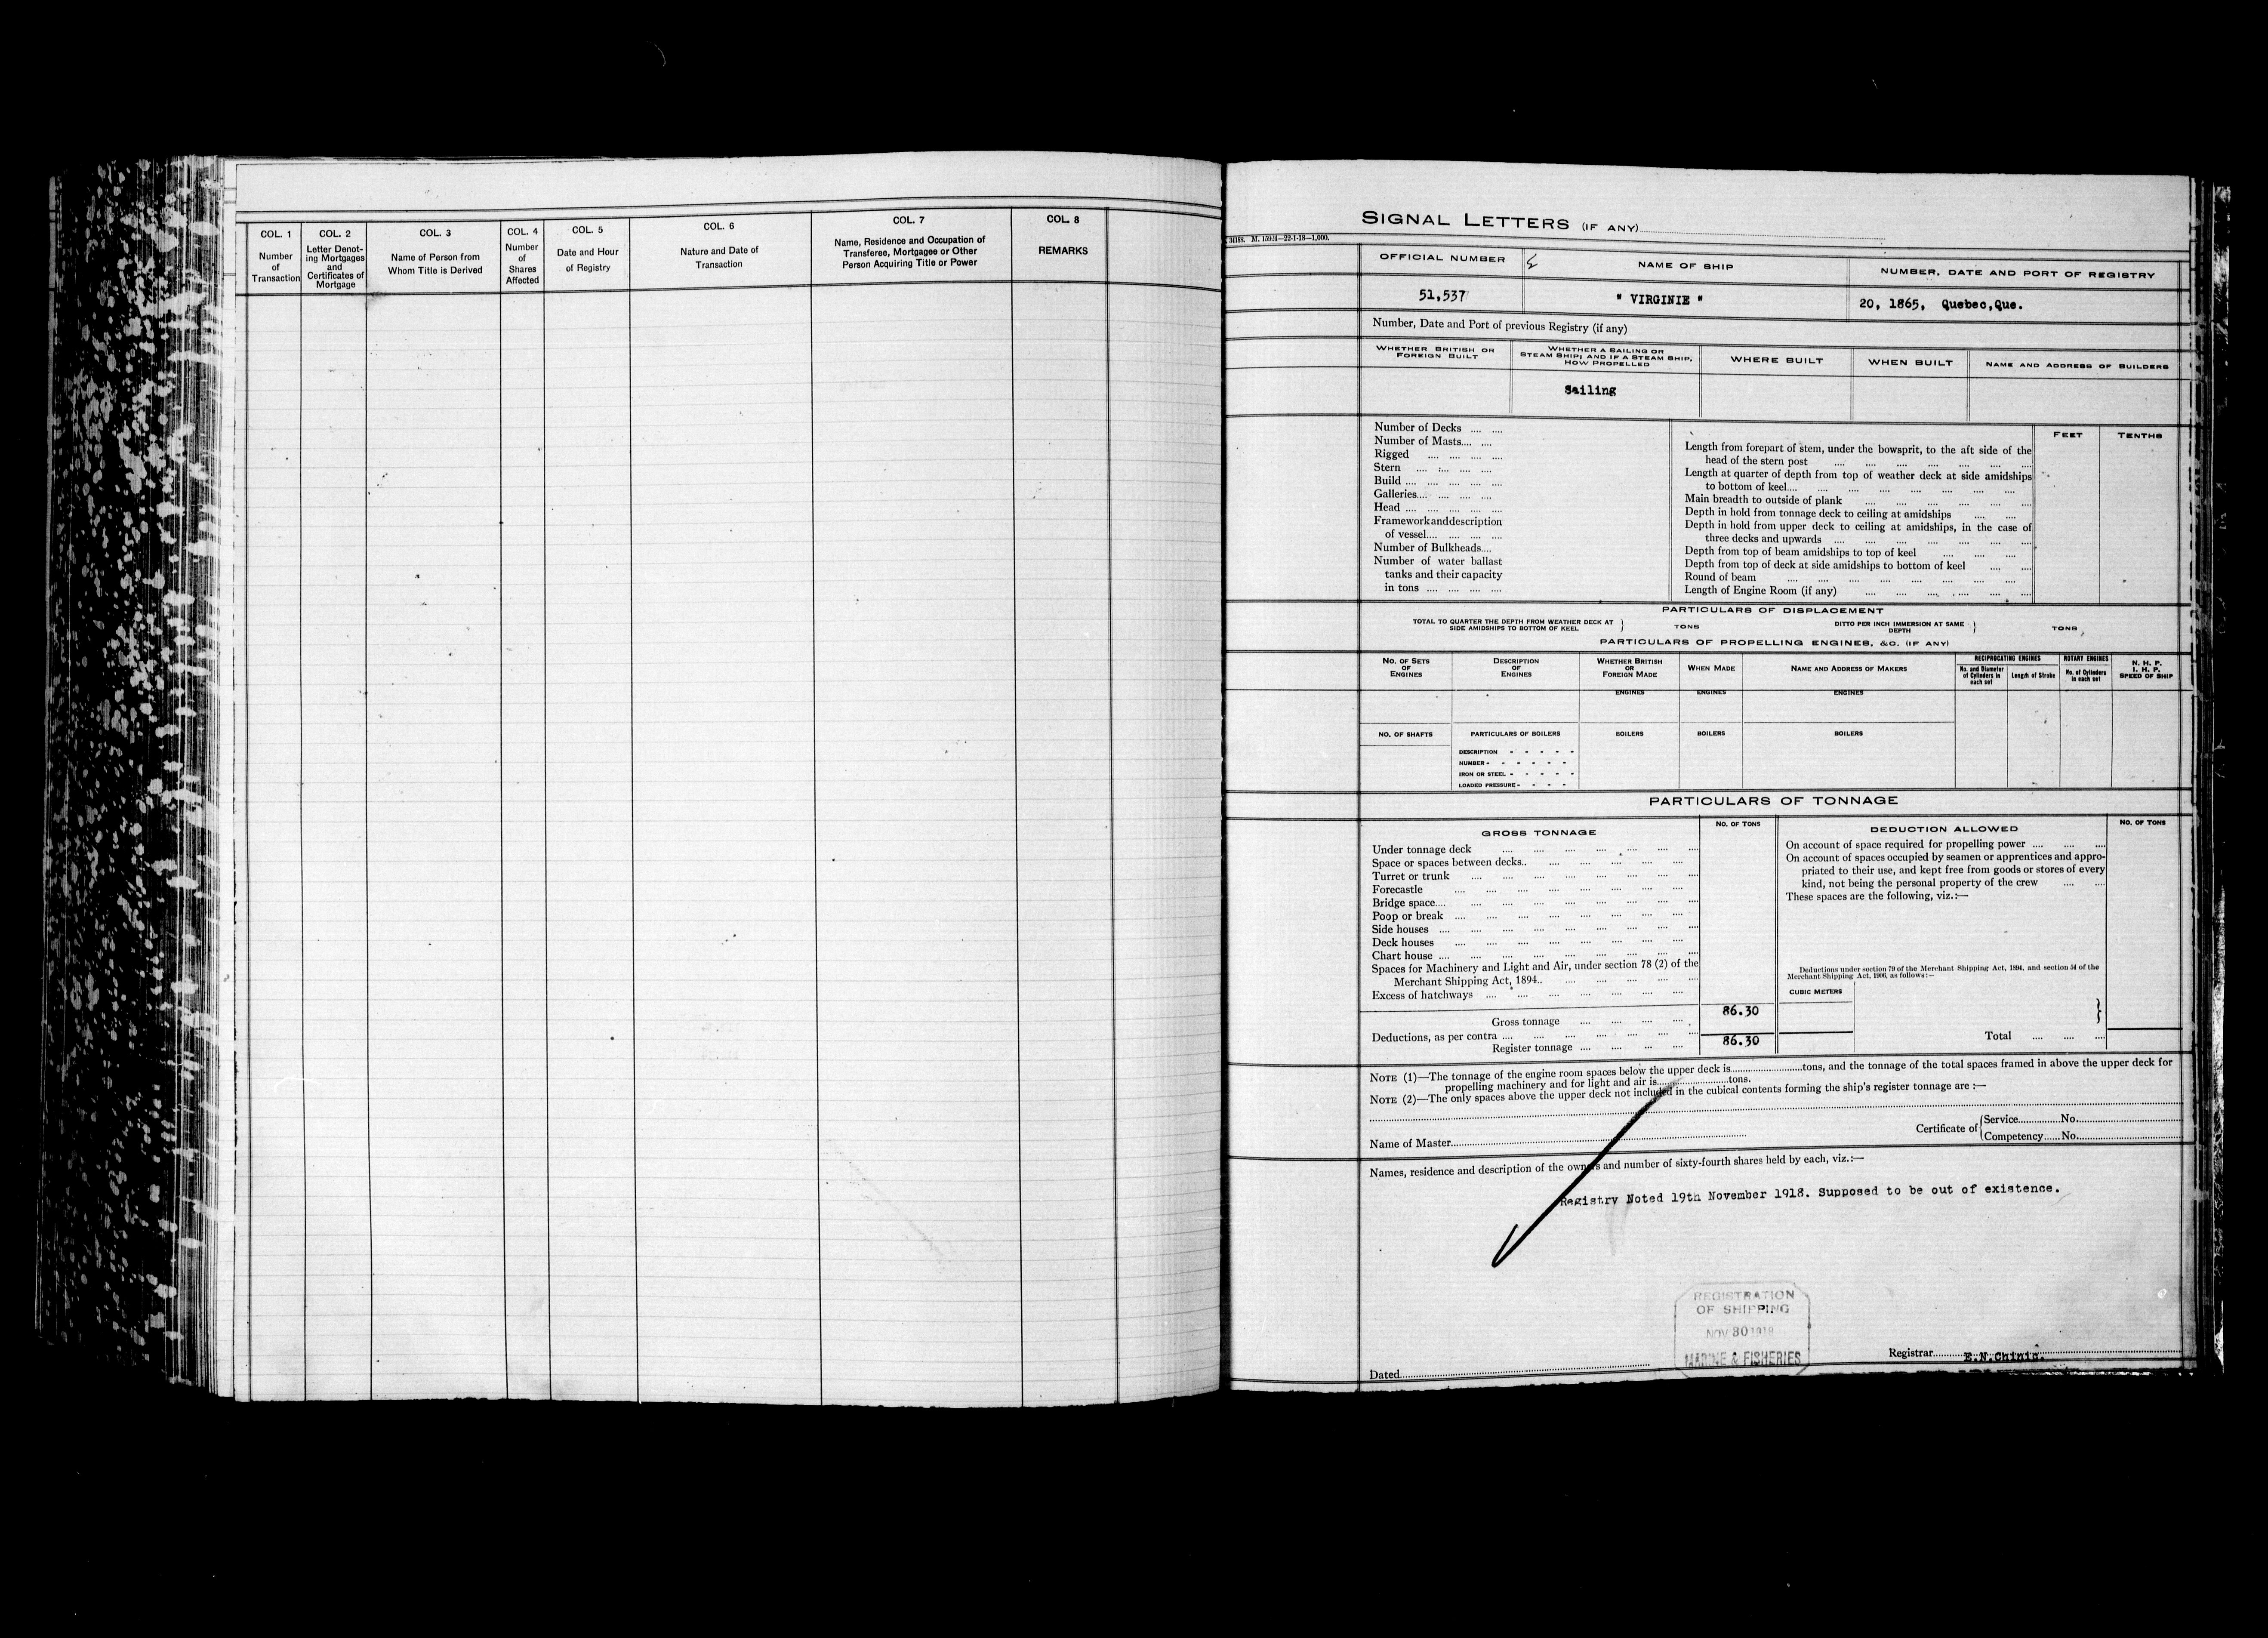 COL. 1
Number
of
Transaction
COL. 2
Letter Denot-
ing Mortgages
and
Certificates of
Mortgage
COL. 3
Name of Person from
Whom Title is Derived
COL. 4
Number
of
Shares
Affected
COL. 5
Date and Hour
of Registry
COL. 6
Nature and Date of
Transaction
COL. 7
Name, Residence and Occupation of
Transferee, Mortgagee or Other
Person Acquiring Title or Power
COL. 8
REMARKS
SIGNAL LETTERS (IF ANY)
M. 15924—22-1-18—1,000.
OFFICIAL NUMBER
NAME OF SHIP
NUMBER, DATE AND PORT OF REGISTRY
51,537
" VIRGINIE "
20, 1865, Quebec,Que.
Number, Date and Port of previous Registry (if any)
WHETHER BRITISH OR
FOREIGN BUILT
WHETHER A SAILING OR
STEAM SHIP; AND IF A STEAM SHIP,
HOW PROPELLED
WHERE BUILT
WHEN BUILT
NAME AND ADDRESS OF BUILDERS
Sailing
Number of Decks .... ....
Number of Masts.... ....
Rigged .... .... .... ....
Stern .... .... .... ....
Build .... .... .... .... ....
Galleries.... .... .... ....
Head .... .... .... .... ....
Framework and description
of vessel.... .... .... ....
Number of Bulkheads....
Number of water ballast
tanks and their capacity
in tons .... .... .... ....
FEET
TENTHS
Length from forepart of stem, under the bowsprit, to the aft side of the
head of the stern post .... .... .... .... .... .... ....
Length at quarter of depth from top of weather deck at side amidships
to bottom of keel.... .... .... .... .... .... .... ....
Main breadth to outside of plank .... .... .... .... .... ....
Depth in hold from tonnage deck to ceiling at amidships .... ....
Depth in hold from upper deck to ceiling at amidships, in the case of
three decks and upwards .... .... .... .... .... .... ....
Depth from top of beam amidships to top of keel .... .... ....
Depth from top of deck at side amidships to bottom of keel .... ....
Round of beam .... .... .... .... .... .... .... ....
Length of Engine Room (if any) .... .... .... .... .... ....
PARTICULARS OF DISPLACEMENT
TOTAL TO QUARTER THE DEPTH FROM WEATHER DECK AT
SIDE AMIDSHIPS TO BOTTOM OF KEEL
TONS
DITTO PER INCH IMMERSION AT SAME
DEPTH
TONS
PARTICULARS OF PROPELLING ENGINES, &C. (IF ANY)
NO. OF SETS
OF
ENGINES
DESCRIPTION
OF
ENGINES
WHETHER BRITISH
OR
FOREIGN MADE
WHEN MADE
NAME AND ADDRESS OF MAKERS
RECIPROCATING ENGINES
No. and Diameter
of Cylinders in
each set
Length of Stroke
ROTARY ENGINES
No. of Cylinders
in each set
N. H. P.
I. H. P.
SPEED OF SHIP
ENGINES
ENGINES
ENGINES
NO. OF SHAFTS
PARTICULARS OF BOILERS
BOILERS
BOILERS
BOILERS
DESCRIPTION - - - - -
NUMBER - - - - - -
IRON OR STEEL - - - - -
LOADED PRESSURE - - - -
PARTICULARS OF TONNAGE
GROSS TONNAGE
NO. OF TONS
DEDUCTION ALLOWED
NO. OF TONS
Under tonnage deck .... .... .... .... .... .... ....
Space or spaces between decks.. .... .... .... .... ....
Turret or trunk .... .... .... .... .... .... .... ....
Forecastle .... .... .... .... .... .... .... ....
Bridge space.... .... .... .... .... .... .... ....
Poop or break .... .... .... .... .... .... .... ....
Side houses .... .... .... .... .... .... .... .... ....
Deck houses .... .... .... .... .... .... .... ....
Chart house .... .... .... .... .... .... .... .... ....
Spaces for Machinery and Light and Air, under section 78 (2) of the
Merchant Shipping Act, 1894.. .... .... .... .... ....
Excess of hatchways .... .... .... .... .... .... ....
Gross tonnage .... .... .... ....
86.30
Deductions, as per contra .... .... .... .... .... .... ....
Register tonnage .... .... .... ....
86.30
On account of space required for propelling power .... .... ....
On account of spaces occupied by seamen or apprentices and appro-
priated to their use, and kept free from goods or stores of every
kind, not being the personal property of the crew .... ....
These spaces are the following, viz.:—
Deductions under section 79 of the Merchant Shipping Act, 1894, and section 54 of the
Merchant Shipping Act, 1906, as follows:—
CUBIC METERS
Total .... .... ....
NOTE (1)—The tonnage of the engine room spaces below the upper deck is........................tons, and the tonnage of the total spaces framed in above the upper deck for
propelling machinery and for light and air is........................tons.
NOTE (2)—The only spaces above the upper deck not included in the cubical contents forming the ship's register tonnage are :—
Name of Master
Certificate of
Service..............No.
Competency......No.
Names, residence and description of the owners and number of sixty-fourth shares held by each, viz.:—
Registry Noted 19th November 1918. Supposed to be out of existence.
REGISTRATION
OF SHIPPING
NOV 30 1918
MARINE & FISHERIES
Dated
Registrar
E.N.Chinic.